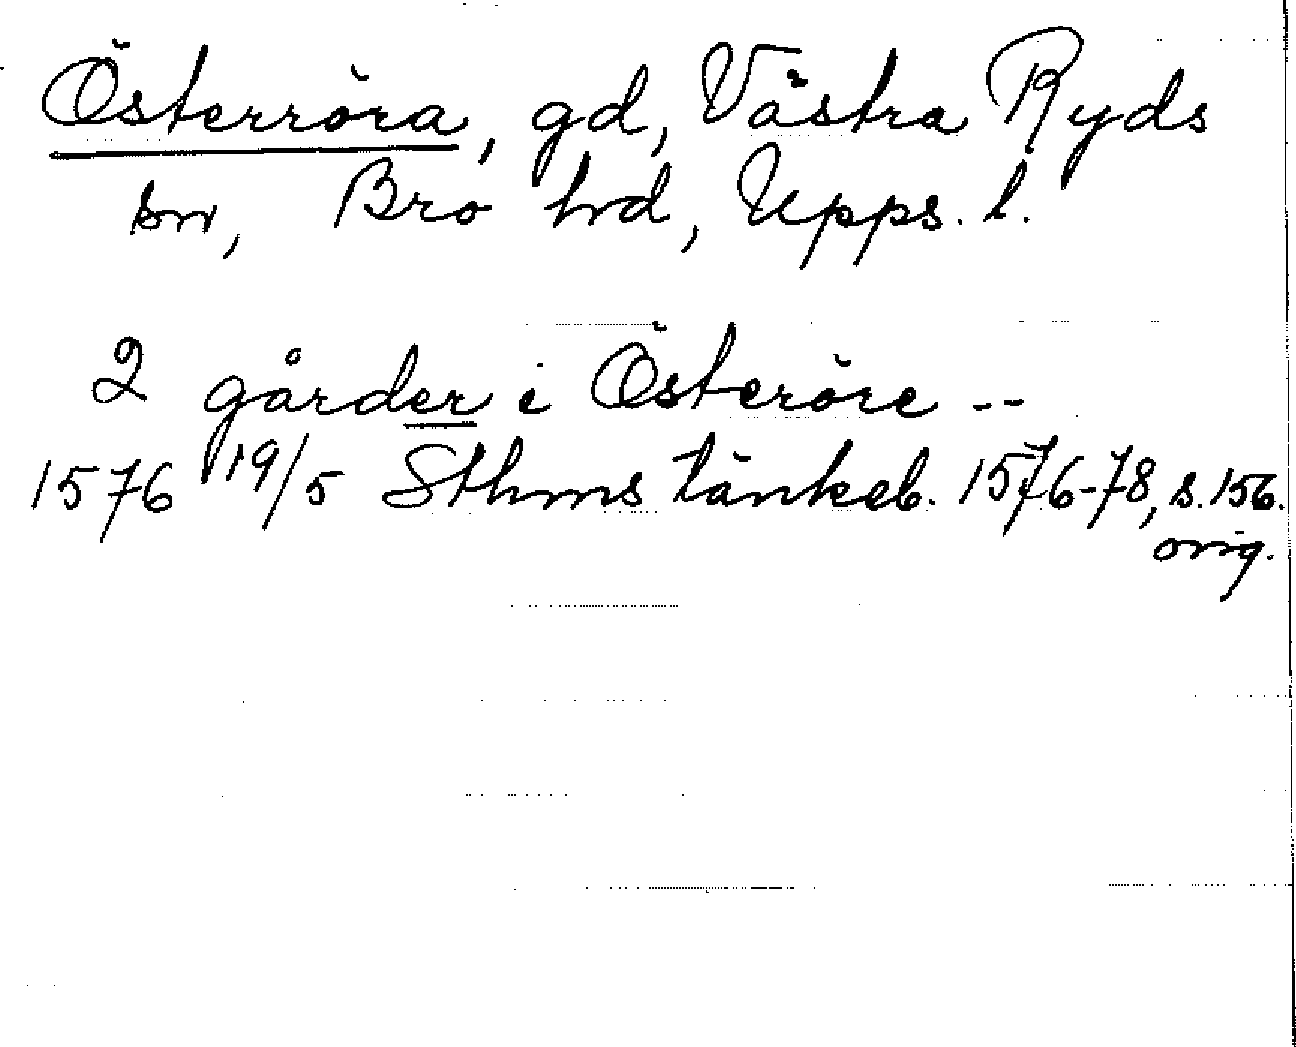 Österröra, gd, Västra Ryds
sn, Bro hrd, Upps. l.
2 gårder i Österöre --
1576 19/5 Sthms tänkeb. 1576-78, s. 156.
orig.